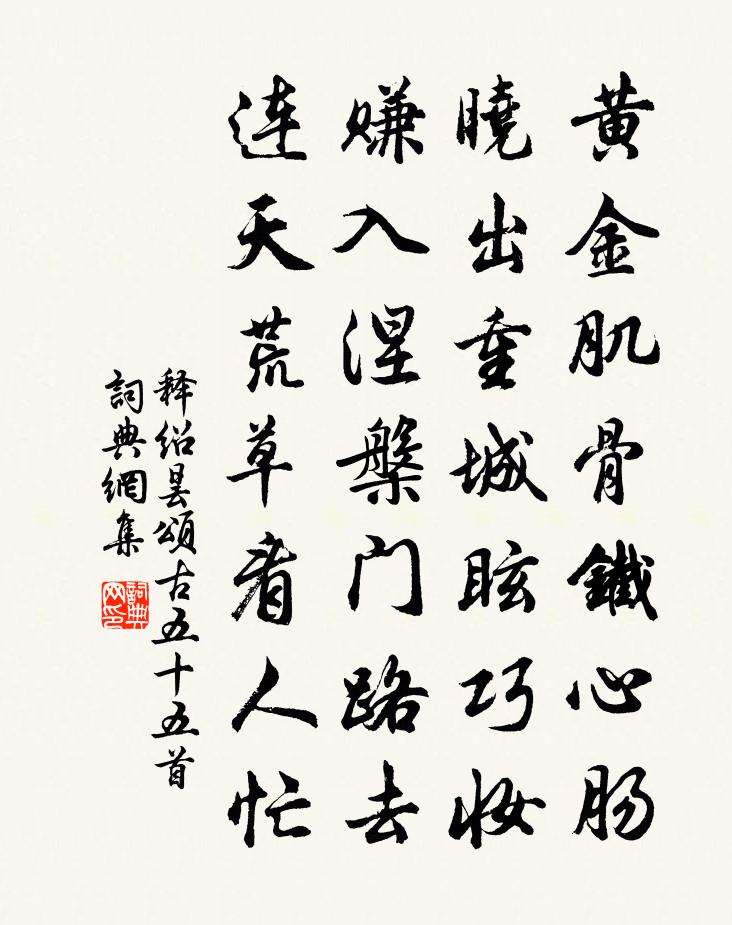 黄金肌骨鐵心腸
曉出重城眩巧妝
赚入涅槃门路去
连天荒草看人忙
释绍昙頌古五十五首
詞典網集
詞典网印